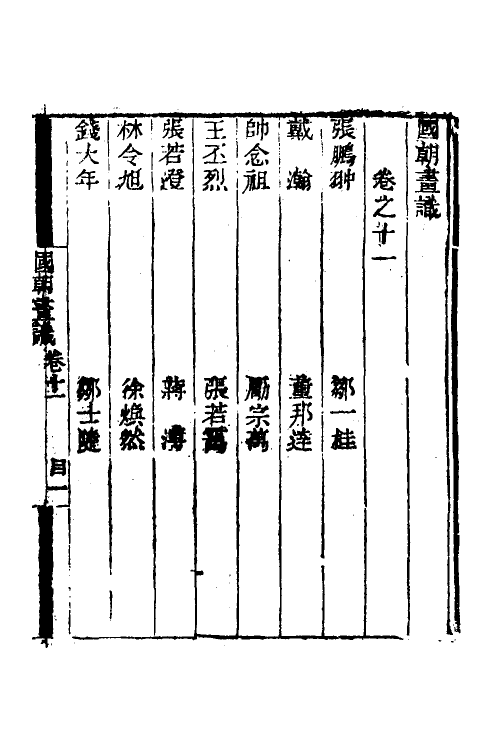 國朝畫識
卷之十一
張鵬翀 鄒一桂
戴瀚 董邦達
帥念祖 勵宗萬
王丕烈 張若靄
張若澄 蔣溥
林令旭 徐煥然
錢大年 鄒士隨
國朝畫識 卷十一 目一